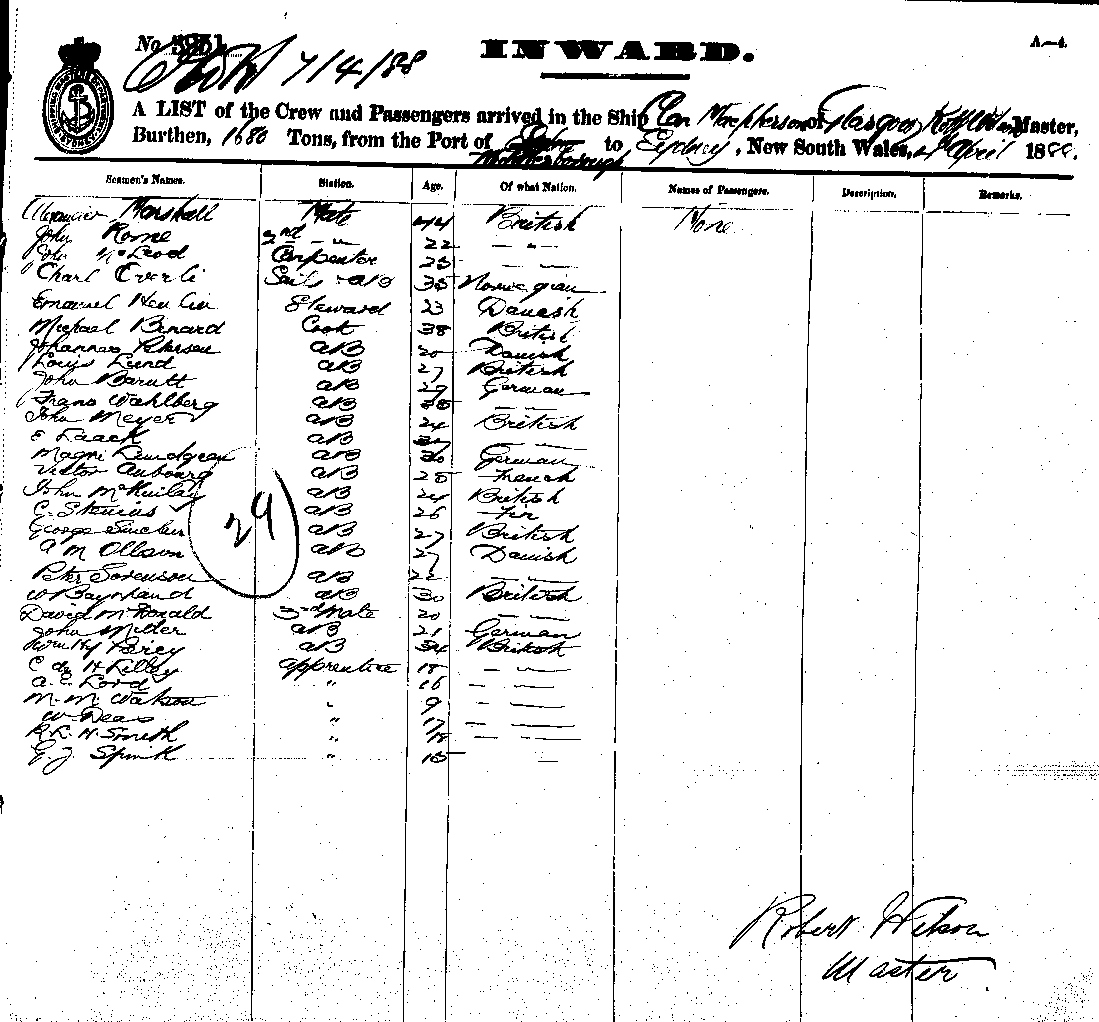 No 5931
INWARD.
A—4.
7/4/88
A LIST of the Crew and Passengers arrived in the Ship Clan Macpherson of Glasgow Robt Wilson Master,
Burthen, 1680 Tons, from the Port of Middlesborough to Sydney, New South Wales, April 1888.
Seamen's Names. Station. Age. Of what Nation. Names of Passengers. Description. Remarks.
Alexander Marshall Mate 44 British None
John Rome 2nd — " — 22 — " —
John McLeod Carpenter 25 — —
Charl Everli Sails - AB 35 Norwegian
Emanuel Steward 23 Danish
Michael Benard Cook 38 British
Johannes Petersen AB 20 Danish
Louis Lund AB 27 British
John AB 29 German
Frans Wahlberg AB — —
John Meyer AB 24 British
E Laack AB — —
Magni Lundgren AB 30 German
Victor Aubourg AB 25 French
John McKinlay AB 24 British
C. Stenius AB 26 Fin
George Sinclair AB 27 British
A M Ollson AB 27 Danish
Peter Sorenson AB 22 — —
W Bayshand AB 30 British
David McDonald 3rd Mate 20 — —
John Miller AB 21 German
Percy AB 34 British
C de H Kilby Apprentice 18 — —
A. E. Lord " 16 — —
M. M. Watson " — —
W Deas " 17 — —
R. L. H. Smith " 18 — —
G. J. Spink " 15 —
29
Robert Wilson
Master